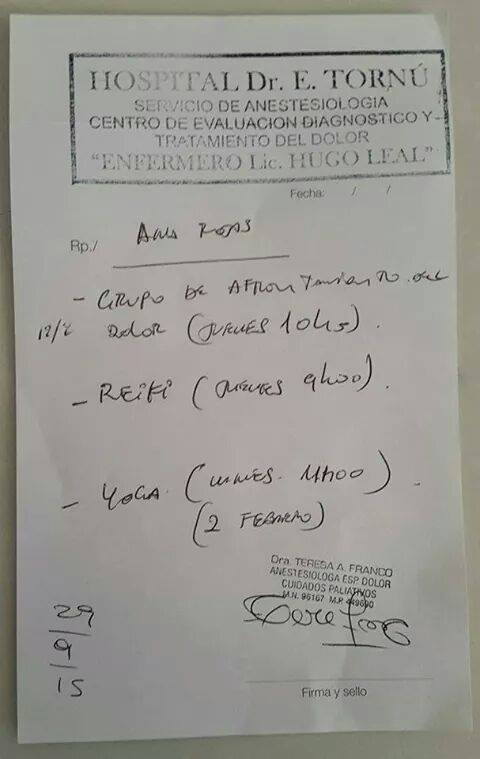 HOSPITAL Dr. E. TORNÚ
SERVICIO DE ANESTESIOLOGIA
CENTRO DE EVALUACION DIAGNOSTICO Y
TRATAMIENTO DEL DOLOR
"ENFERMERO Lic. HUGO LEAL"
Fecha: / /
Rp./ ANA ROJAS
- GRUPO DE AFRONTAMIENTO DEL
12/2 DOLOR (JUEVES 10HS).
- REIKI (JUEVES 9H00).
- YOGA. (LUNES. 11H00).
(2 FEBRERO)
Dra. TERESA A. FRANCO
ANESTESIOLOGA ESP. DOLOR
CUIDADOS PALIATIVOS
M.N. 96167 M.P.
29
9
15
Firma y sello